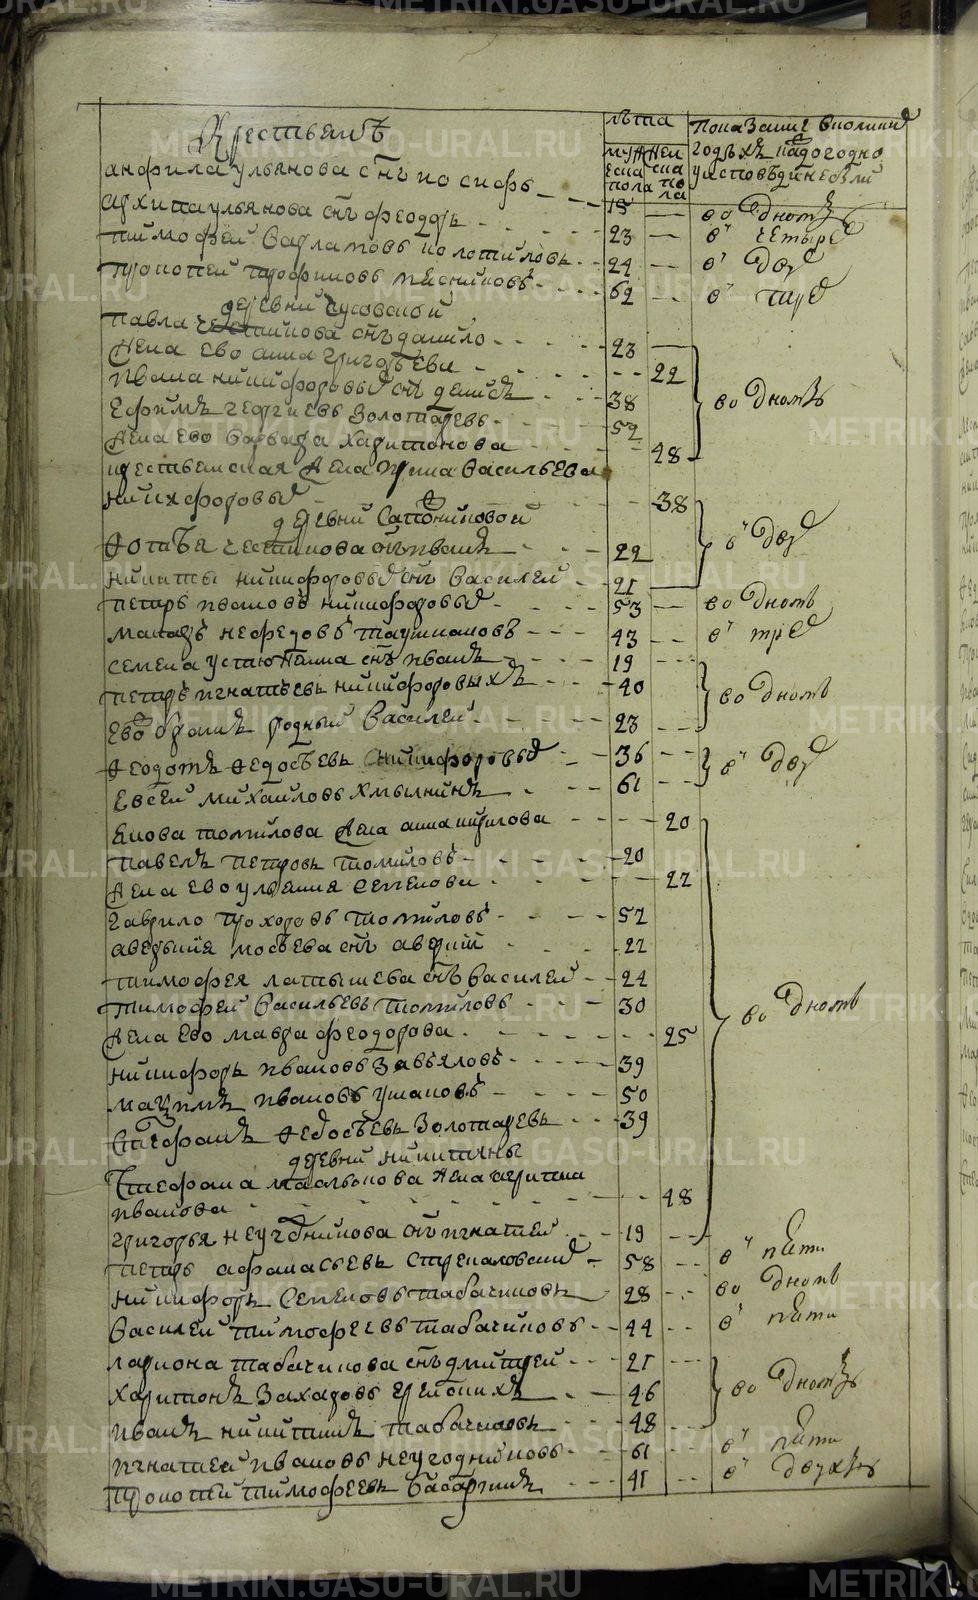 METRIKI.GASO-URAL.RU
Крестьянъ
лѣта
муже
ска
пола
жен
ска
по
ла
показание вколики
годѣхъ кадогодно
уисповѣди небыли
анфила ульянова снъ иосифъ 15 во одномъ
архипа ульянова снъ феодоръ 23 в четыре
тимофей варламовъ 24 в дву
прокопей трофимовъ 62 в три
деревни чусовской
павла снъ данило 23
жена ево анна григорьева 22
ивана никифоровых снъ денисъ 38 во одномъ
ефимъ георгиевъ золотаревъ 52
жена ево варвара харитонова 48
крестьянская жена ирина васильева
никифоровых 38
деревни сапониковой
фотѣя снъ иванъ 22 в дву
никиты никифоровых снъ василей 21
петръ ивановъ никифоровых 53 во одномъ
макаръ нефедовъ 43 в тре
семена устюжанина снъ иванъ 19
петръ игнатьевъ никифоровыхъ 40 во одномъ
ево братъ родный василей 23
феодотъ федосѣевъ никифоровых 36 в дву
евсей михайловъ хмылнинъ 61
якова томилова жена анна кирилова 20
павелъ петровъ томиловъ 20
жена ево ульяния семенова 22
гаврило прохоровъ томиловъ 52
мосѣева снъ 22
тимофея латышева снъ василей 24
тимофей васильевъ томиловъ 30 во одномъ
жена ево мавра феодорова 25
никифоръ ивановъ завьяловъ 39
ивановъ ушаковъ 50
стефанъ федосѣевъ золотаревъ 39
деревни никитины
стефана жена ирина
иванова 48
григорья неугодникова снъ игнатей 19
петръ афанасьевъ 58 в пяти
никифоръ семеновъ табачиковъ 28 во одномъ
василей тимофеевъ табачиковъ 44 в пяти
лариона табачикова снъ дмитрей 21
харитонъ захаровъ 46 во одномъ
иванъ никитинъ табачиковъ 48
игнатей ивановъ неугодниковъ 61 в пяти
прокопей тимофеевъ басаргинъ 41 в двухъ